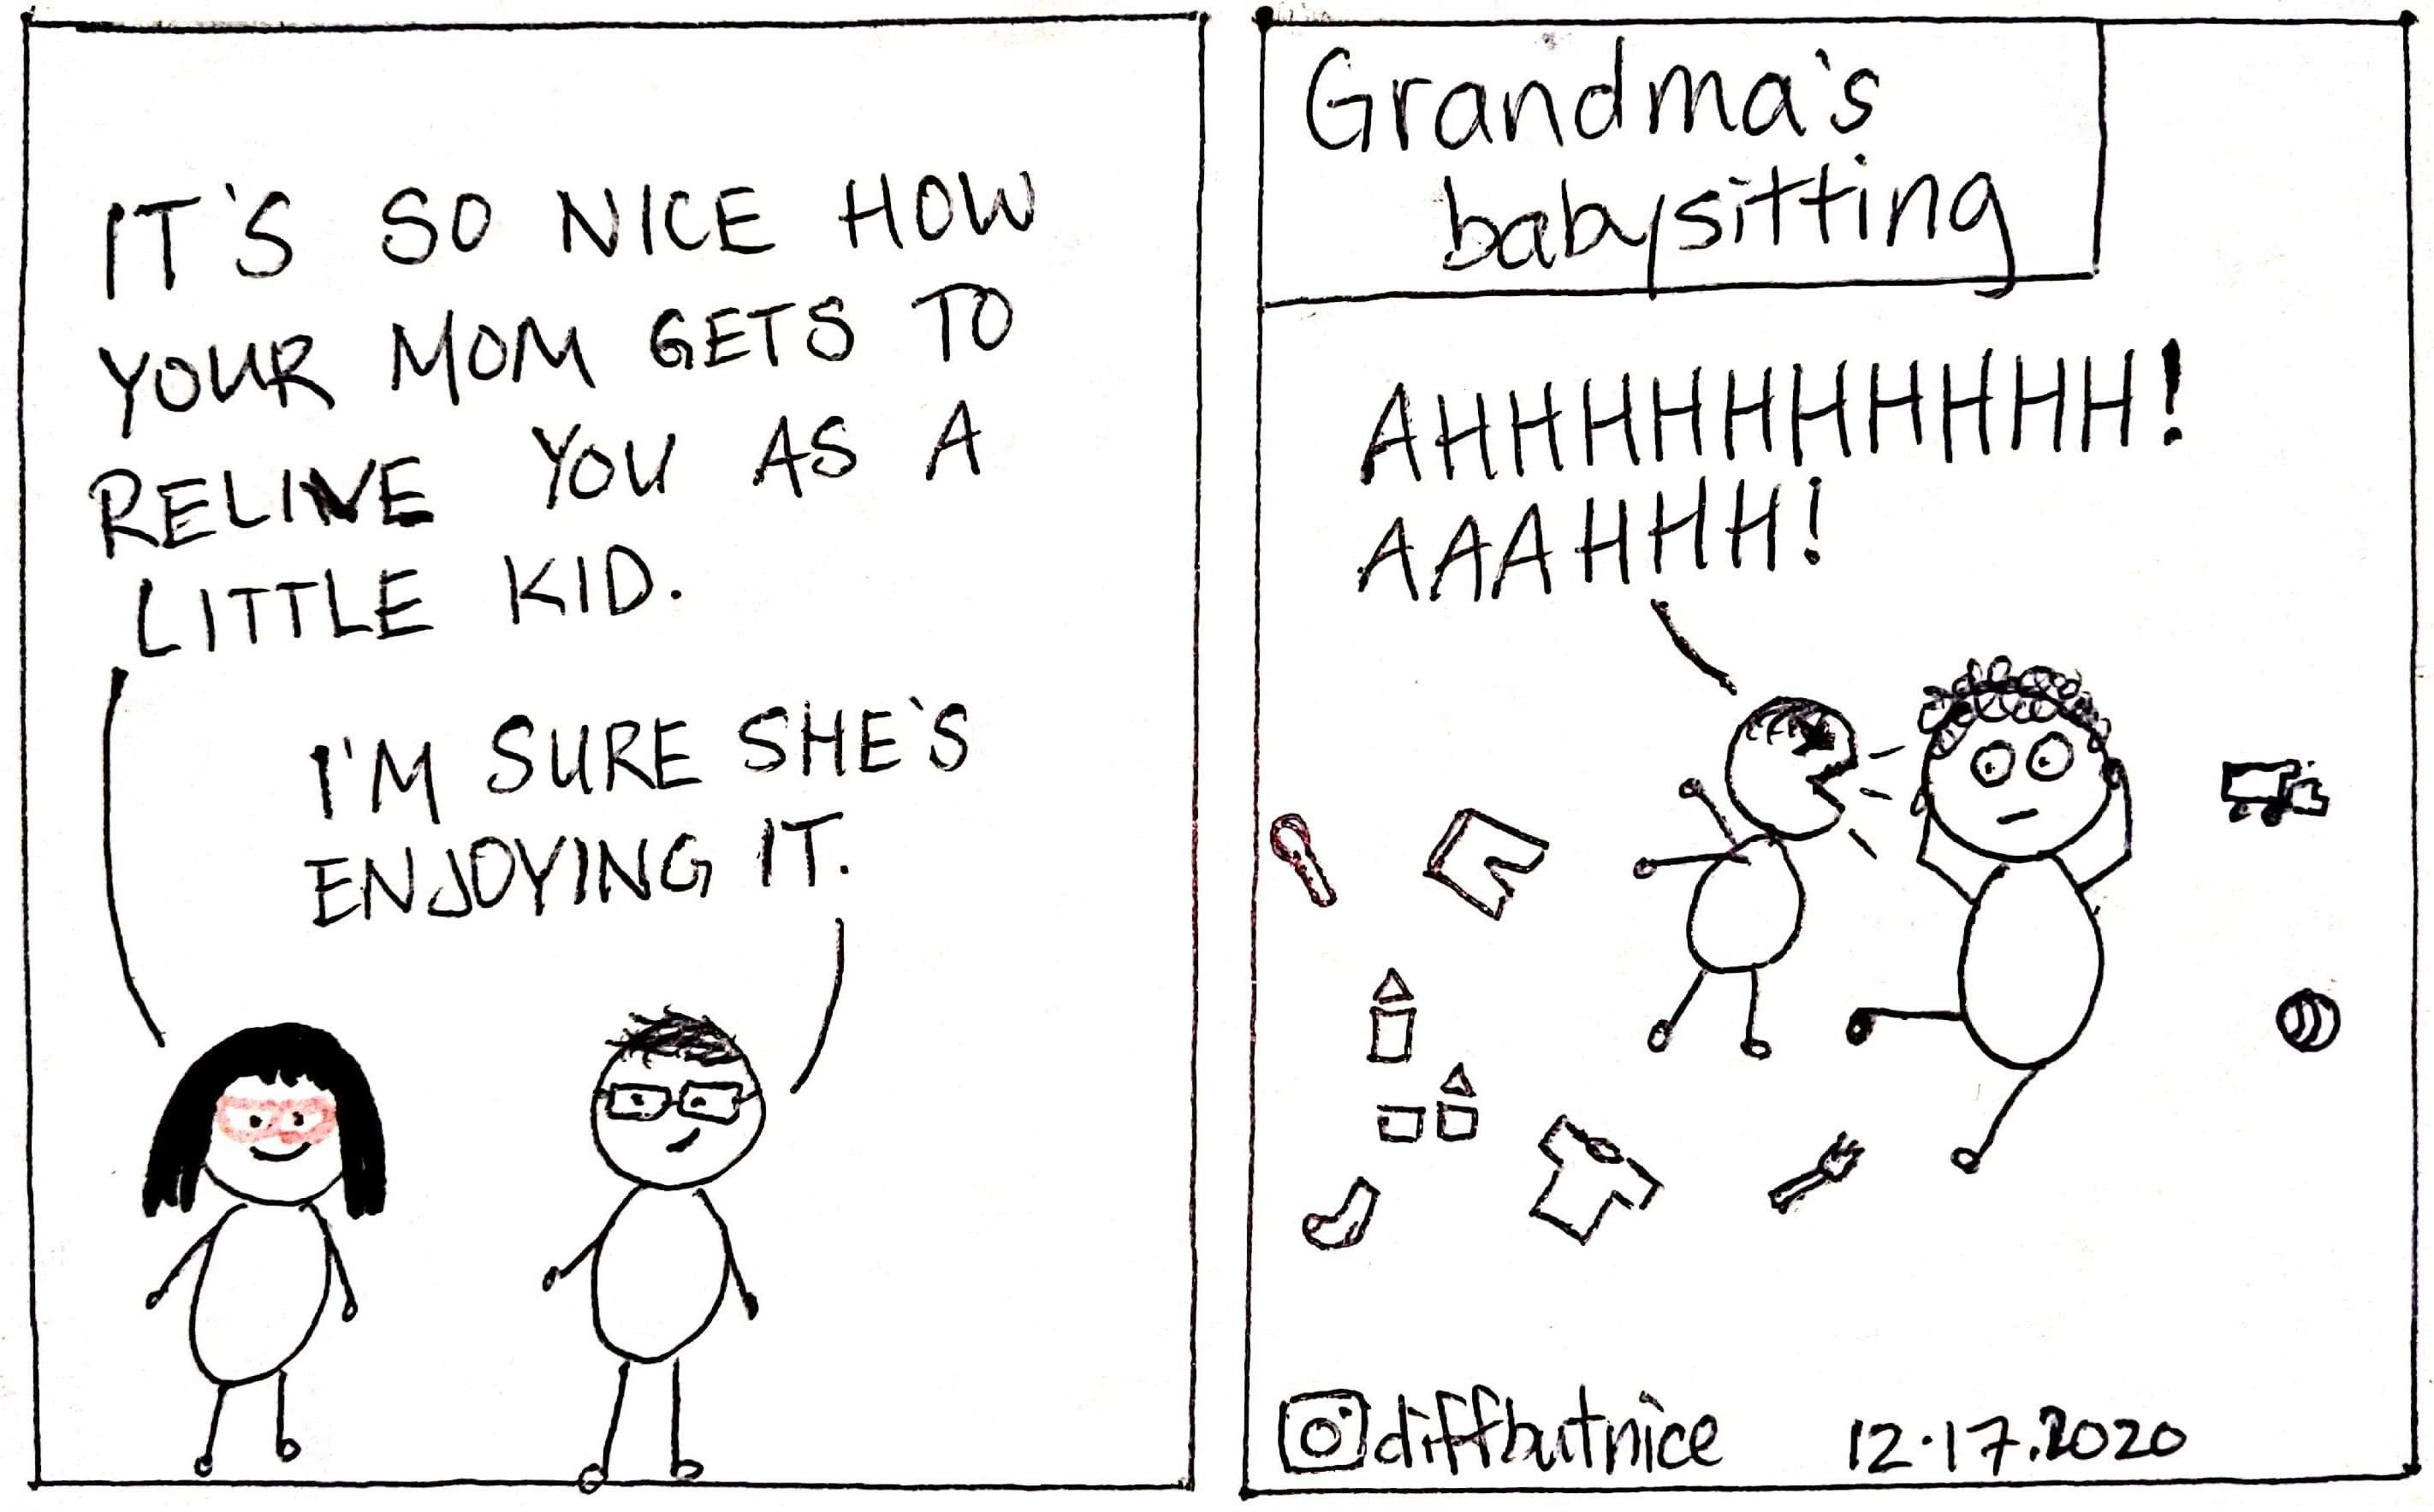 IT'S SO NICE HOW
YOUR MOM GETS TO
RELIVE YOU AS A
LITTLE KID.
I'M SURE SHE'S
ENJOYING IT.
Grandma's
babysitting
AHHHHHHHHHH!
AAAHHH!
diffbutnice 12.17.2020